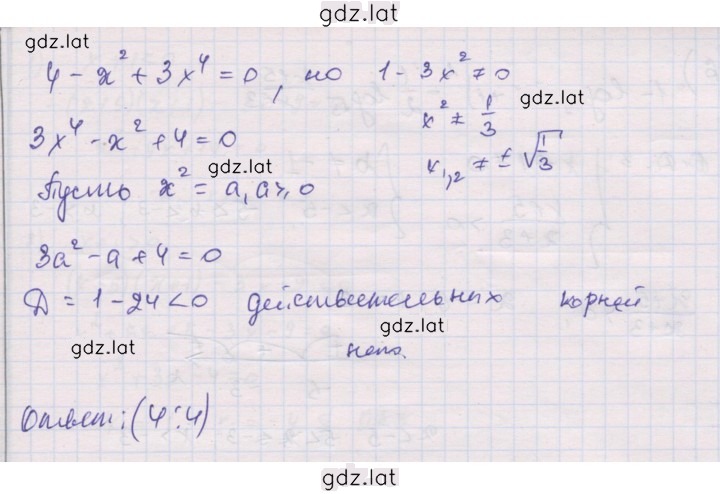 gdz.lat
gdz.lat
4 - x² + 3x⁴ = 0, но 1 - 3x² ≠ 0
gdz.lat
3x⁴ - x² + 4 = 0 x² ≠ 1/3
gdz.lat x₁,₂ ≠ ± √1/3
Пусть x² = a, a ≥ 0
3a² - a + 4 = 0
D = 1 - 24 < 0 действительных корней
gdz.lat
gdz.lat нет.
Ответ: (4; 4)
gdz.lat